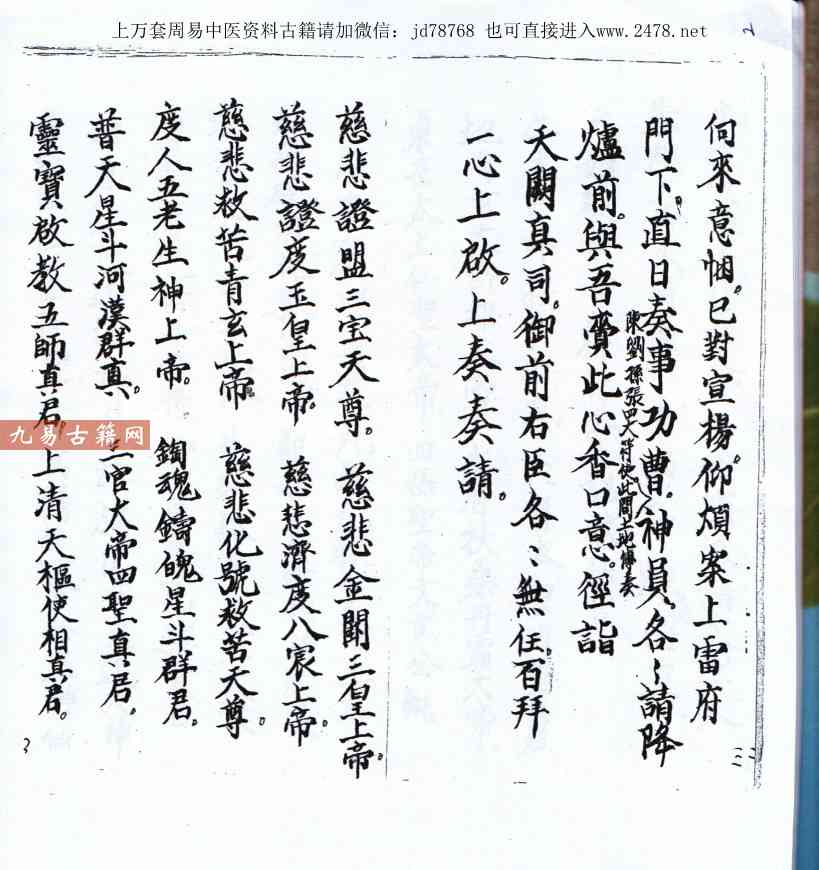 上万套周易中医资料古籍请加微信：jd78768 也可直接进入www.2478.net
向來意悃。已對宣楊。仰煩案上雷府
門下。直日奏事功曹。神員。各〻請降
陳劉孫張四大符使此間土地傳奏
爐前。與吾賫此心香口意。徑詣
天闕真司。御前右臣各〻無任。百拜
一心上啟。上奏奏請。
慈悲證盟三宝天尊。慈悲金闕三皇上帝。
慈悲證度玉皇上帝。慈悲濟度八宸上帝。
慈悲救苦青玄上帝。慈悲化號救苦天尊。
度人五老生神上帝。鍧魂鑄魄星斗群君。
普天星斗河漢群真。三官大帝四聖真君。
靈寶啟教五師真君。上清天樞使相真君。
九易古籍网